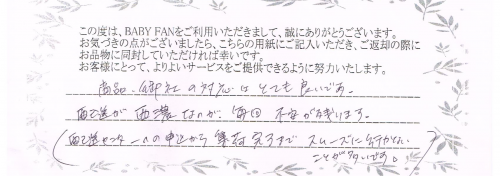 この度は、BABY FANをご利用いただきまして、誠にありがとうございます。
お気づきの点がございましたら、こちらの用紙にご記入いただき、ご返却の際に
お品物に同封していただければ幸いです。
お客様にとって、よりよいサービスをご提供できるように努力いたします。
商品、御社の対応はとても良いです。
配送が西濃なのが、毎回不安が残ります。
(配送センターへの申込から集荷完了までスムーズに行かない
ことが多いです。)